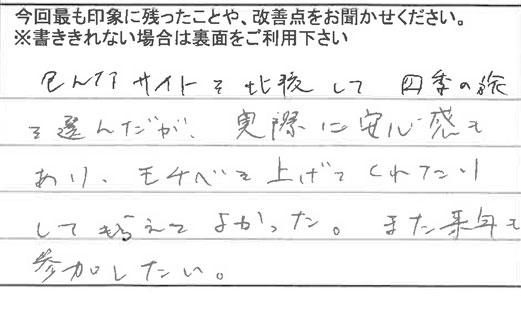 今回最も印象に残ったことや、改善点をお聞かせください。
※書ききれない場合は裏面をご利用下さい
色んなサイトを比較して 四季の旅
を選んだが、実際に安心感も
あり、モチベを上げてくれたり
して もらえて よかった。また来年も
参加したい。